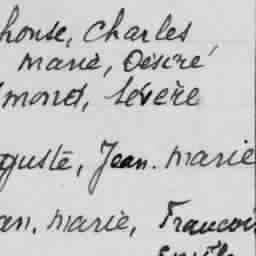 phonse, Charles
Marie, Désiré
dmond, Sévère
guste, Jean. Marie
an. Marie, Francois